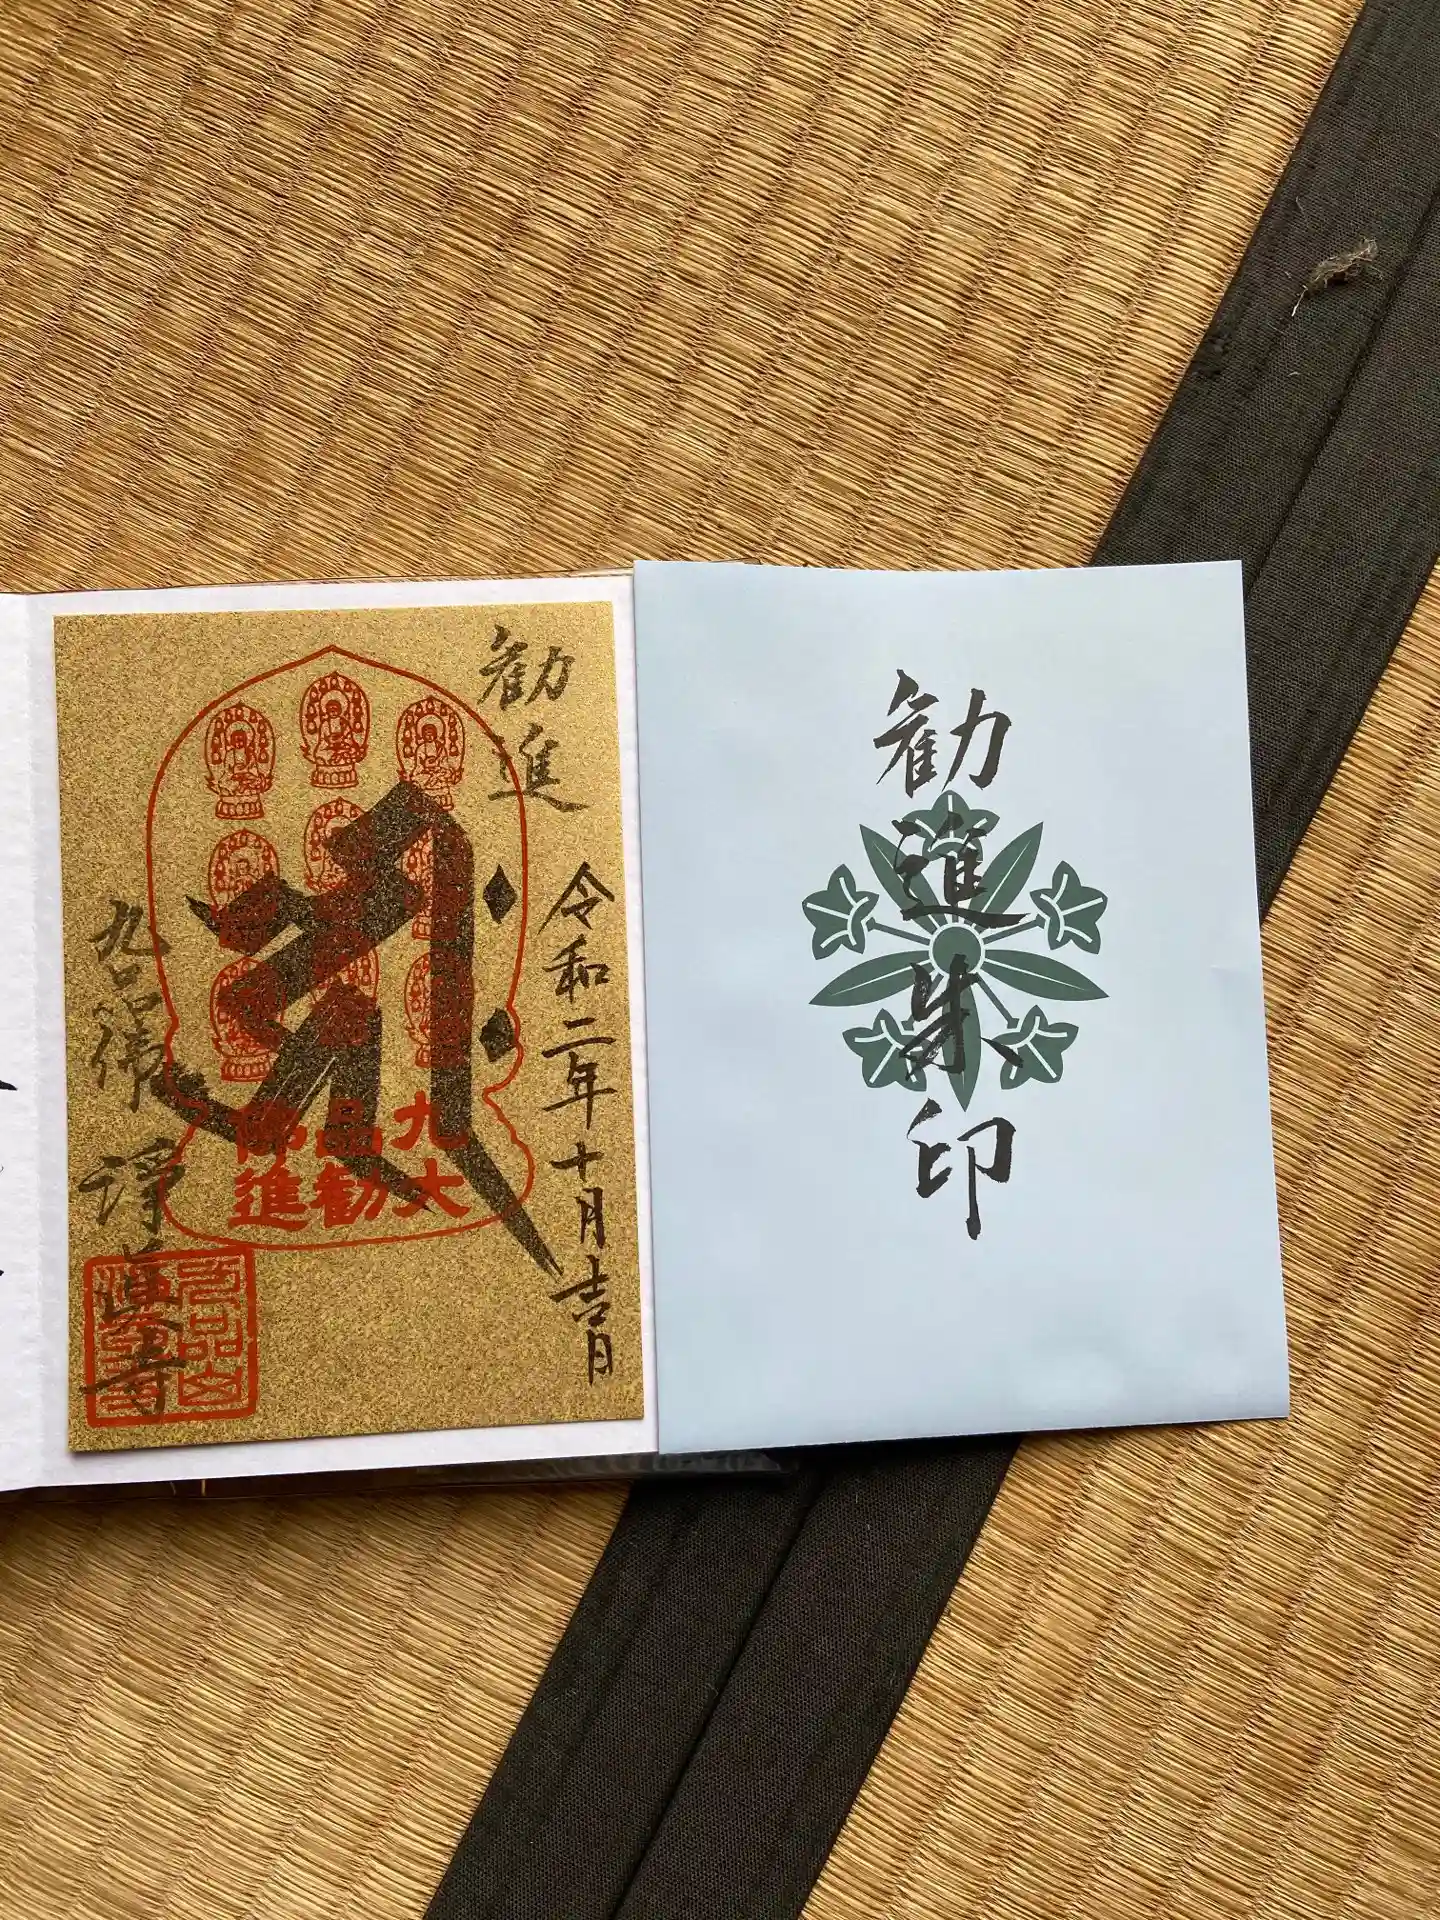 勧進
令和二年十月吉日
九品大勧進佛
九品佛
浄真寺
勧進朱印